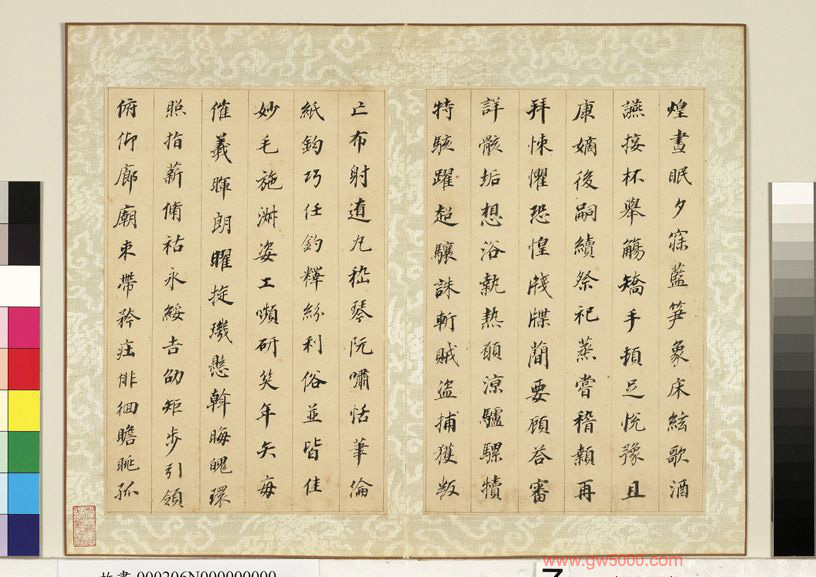 煌晝眠夕寐藍笋象床絃歌酒
讌接杯舉觴矯手頓足悅豫且
康嫡後嗣續祭祀蒸嘗稽顙再
拜悚懼恐惶牋牒蕳要顧答審
詳骸垢想浴執熱願涼驢騾犢
特駭躍超驤誅斬賊盜捕獲叛
亡布射遼丸嵇琴阮嘯恬筆倫
紙鈞巧任釣釋紛利俗並皆佳
妙毛施淑姿工嚬妍笑年矢每
催羲暉朗曜璇璣懸斡晦魄環
照指薪脩祜永綏吉劭矩步引領
俯仰廊廟束帶矜莊徘徊瞻眺孤
www.gw5000.com
000206N000000000